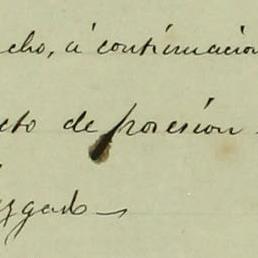 cho, á continuacion
cto de posesion
zgado